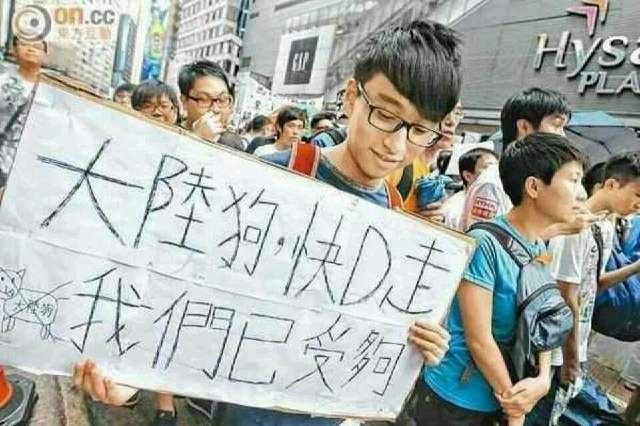 on.cc
東方互動
GAP
Hysan
PLA
大陸狗,快D走
我們已受夠
大陸狗